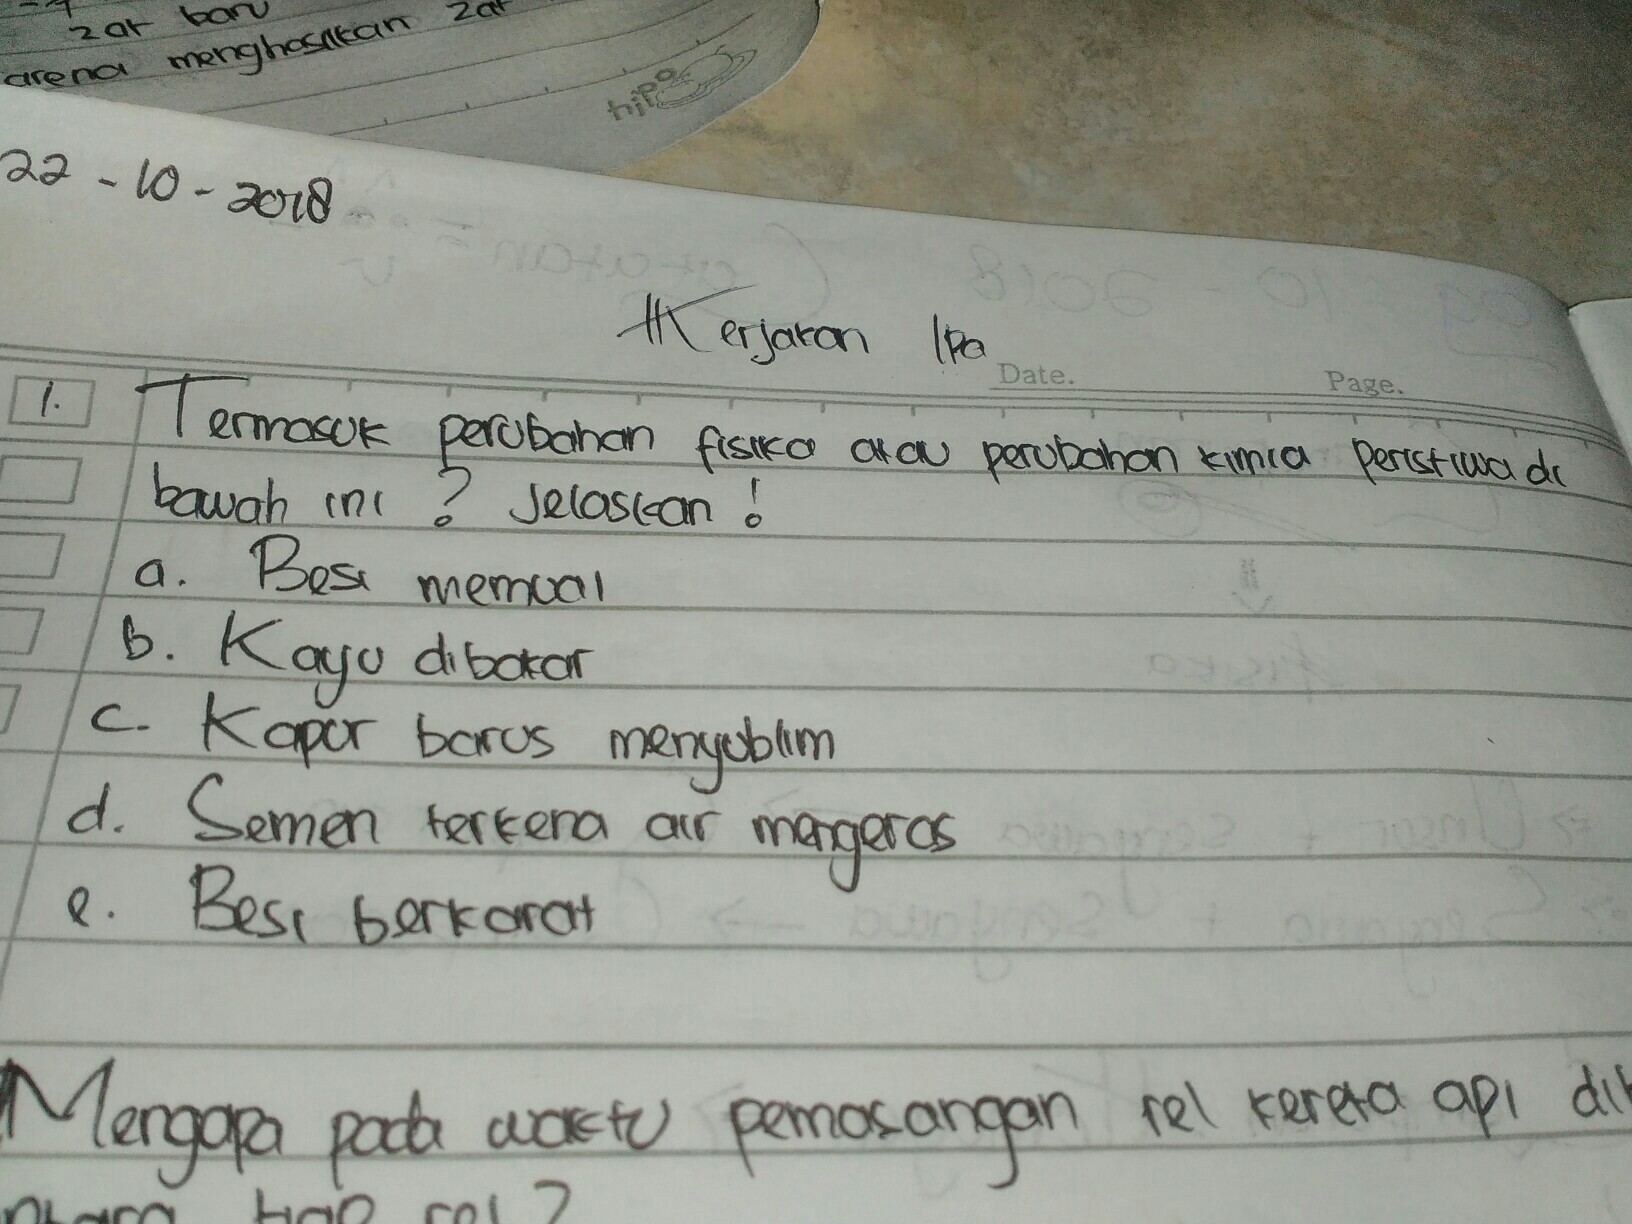 zat baru
arena menghasilkan zat
hipo
22 - 10 - 2018
Kerjakan Ipa
Date.
Page.
1. Termasuk perubahan fisika atau perubahan kimia peristiwa di
bawah ini ? Jelaskan !
a. Besi memuai
b. Kayu dibakar
c. Kapur barus menyublim
d. Semen terkena air mengeras
e. Besi berkarat
Mengapa pada waktu pemasangan rel kereta api
tiap rel ?